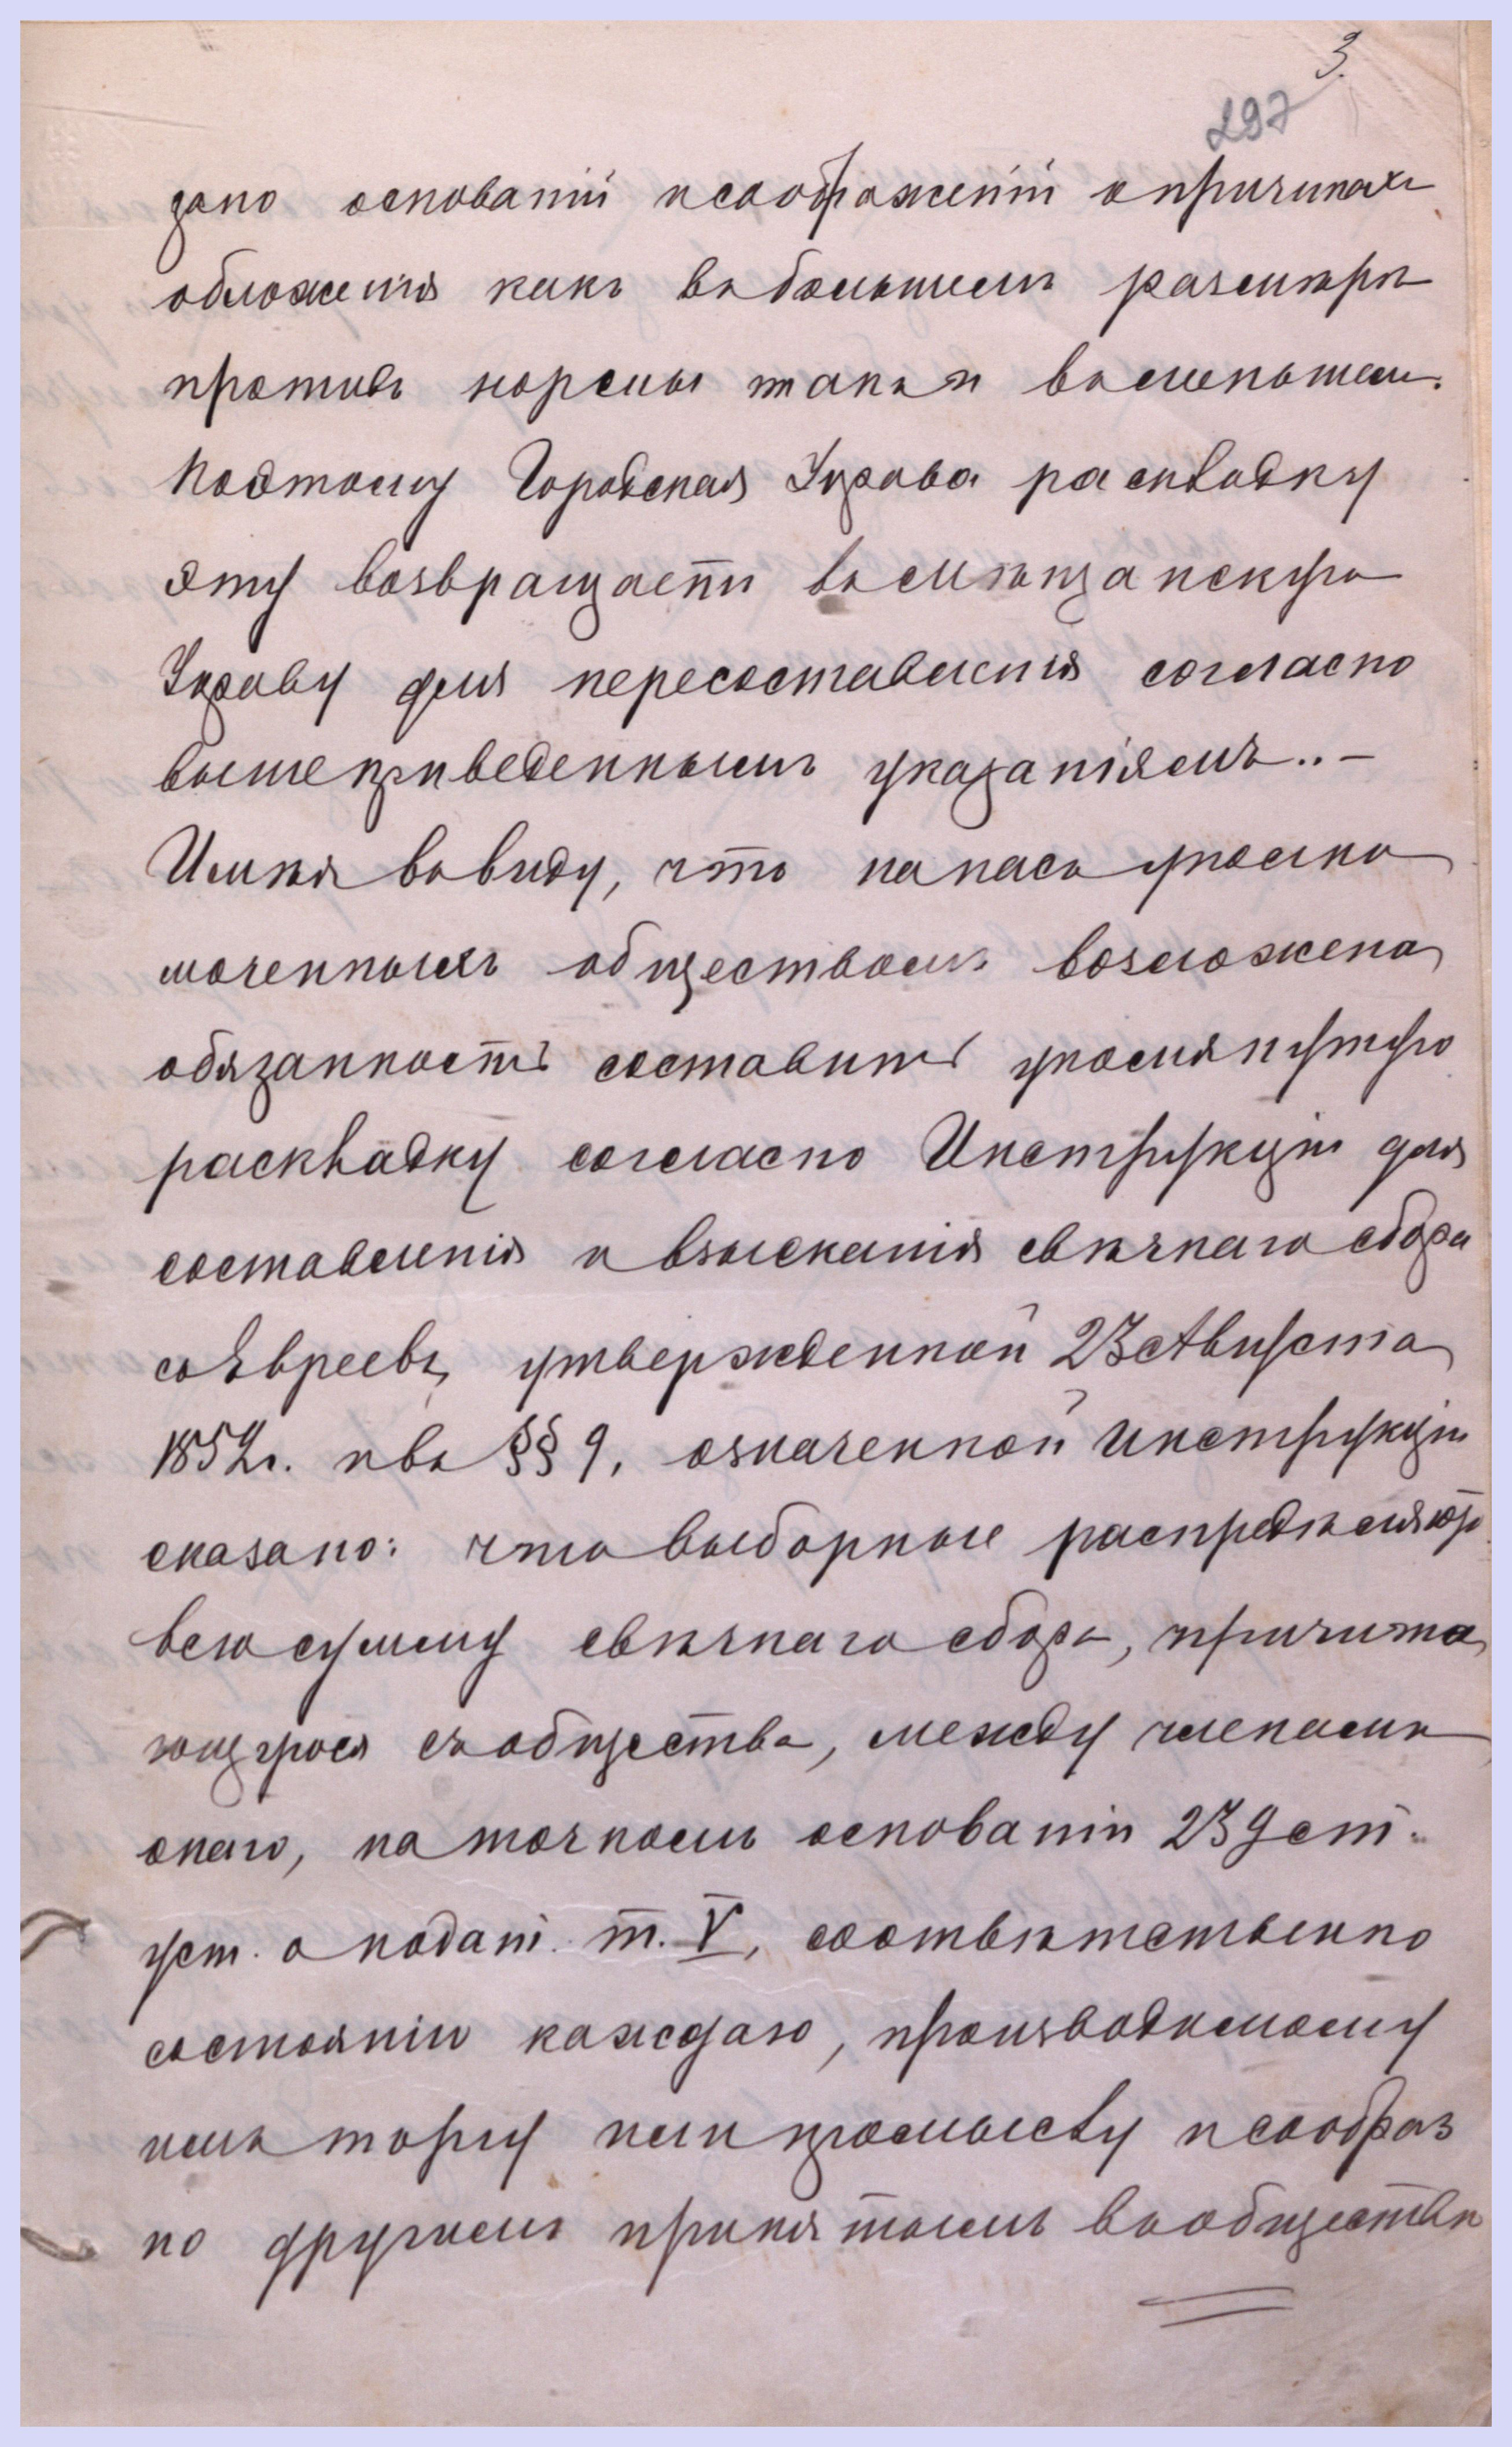 3.
297
зано основаній и соображеній о причинахъ
обложенія какъ въ большемъ размѣрѣ
противъ нормы такъ и въ меньшем.
Поэтому Городская Управа раскладку
эту возвращаетъ въ Мѣщанскую
Управу для пересоставленія согласно
вышеприведеннымъ указаніямъ..-
Имѣя въ виду, что на насъ уполно
моченныхъ обществомъ возложена
обязанность составить упомянутую
раскладку согласно Инструкціи для
составленія и взысканія свѣчнаго сбора
съ Евреевъ, утвержденной 23 Августа
1852г. и въ §§ 9, означенной Инструкціи
сказано: что выборные распредѣляютъ
всю сумму свѣчнаго сбора, причита
ющуюся съ общества, между членами
онаго, на точномъ основаніи 239 ст.
уст. о подат. т. V, соотвѣтственно
состоянію каждаго, производимому
имъ торгу или промыслу и сообраз
но другимъ принятымъ въ обществѣ